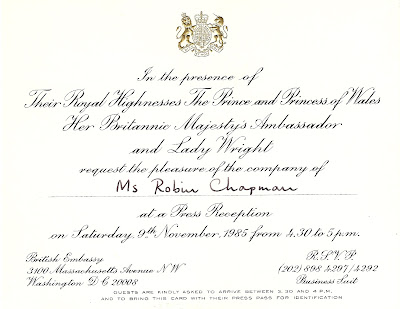 In the presence of
Their Royal Highnesses The Prince and Princess of Wales
Her Britannic Majesty's Ambassador
and Lady Wright
request the pleasure of the company of
Ms Robin Chapman
at a Press Reception
on Saturday, 9th November, 1985 from 4.30 to 5 p.m.
British Embassy
3100 Massachusetts Avenue N W
Washington D C 20008
R.S.V.P.
(202) 898 4297/4292
Business Suit
GUESTS ARE KINDLY ASKED TO ARRIVE BETWEEN 3.30 AND 4 P.M.
AND TO BRING THIS CARD WITH THEIR PRESS PASS FOR IDENTIFICATION